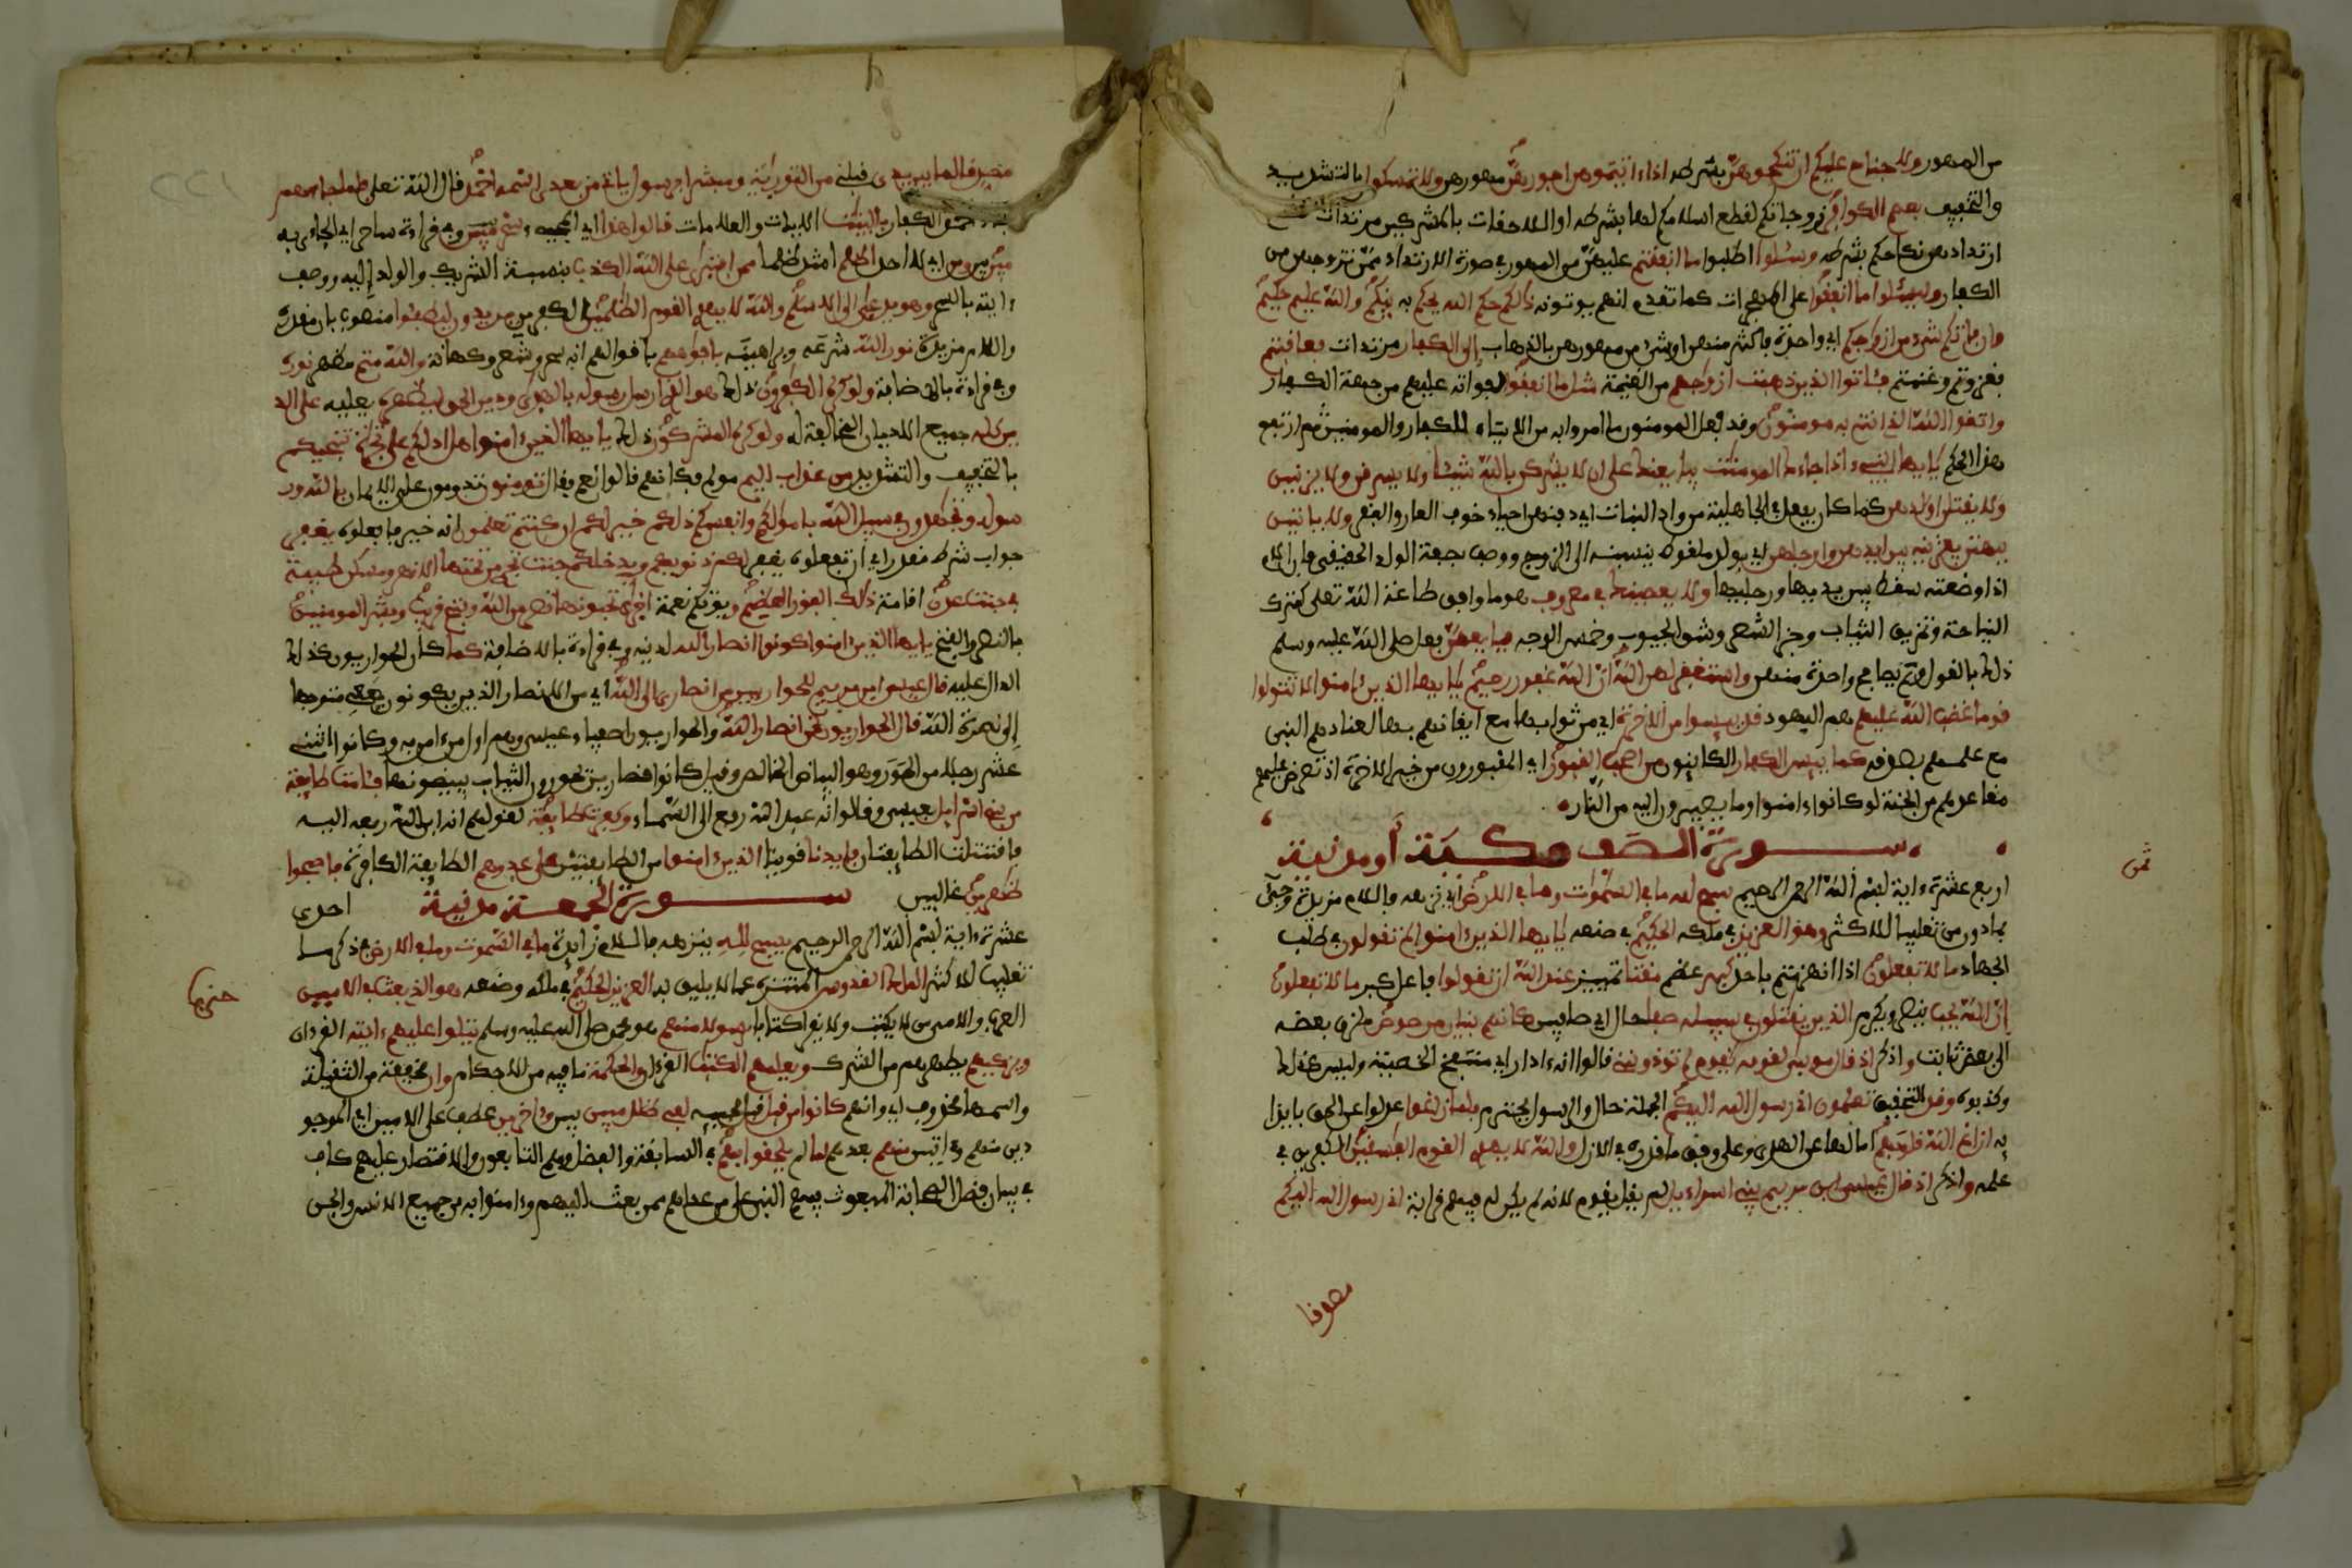 من المهور ولا جناح عليكم أن تنكحوهن بشرطه إذا ءاتيتموهن أجورهن مهورهن ولا تمسكوا بالتشديد
والتخفيف بعصم الكوافر زوجاتكم لقطع إسلامكم لها بشرطه أو اللاحقات بالمشركين مرتدات لقطع
ارتدادهن نكاحكم بشرطه وسئلوا اطلبوا ما أنفقتم عليهن من المهور في صورة الارتداد ممن تزوجهن من
الكفار وليسئلوا ما أنفقوا على المهاجرات كما تقدم أنهم يوتونه ذلكم حكم الله يحكم به بينكم والله عليم حكيم
وإن فاتكم شيء من أزواجكم أي واحدة فأكثر منهن أو شيء من مهورهن بالذهاب إلى الكفار مرتدات فعاقبتم
فغزوتم وغنمتم فئاتوا الذين ذهبت أزواجهم من الغنيمة مثل ما أنفقوا لفواته عليهم من جهة الكفار
واتقوا الله الذي أنتم به مومنون وقد فعل المومنون ما أمروا به من الايتاء للكفار والمومنين ثم ارتفع
هذا الحكم يأيها النبيء إذا جاءك المومنت يبايعنك على أن لا يشركن بالله شيئا ولا يسرقن ولا يزنين
ولا يقتلن أولدهن كما كان يفعل في الجاهلية من وأد البنات أي دفنهن أحياء خوف العار والفقر ولا ياتين
ببهتن يفترينه بين أيديهن وأرجلهن أي بولد ملقوط ينسبنه إلى الزوج ووصف بصفة الولد الحقيقي فإن الأم
إذا وضعته سقط بين يديها ورجليها ولا يعصينك في معروف هو ما وافق طاعة الله تعلى كترك
النياحة وتمزيق الثياب وجز الشعر وشق الجيوب وخمش الوجه فبايعهن فعل صلى الله عليه وسلم
ذلك بالقول ولم يصافح واحدة منهن واستغفر لهن الله إن الله غفور رحيم يأيها الذين ءامنوا لا تتولوا
قوما غضب الله عليهم هم اليهود قد يئسوا من الأخرة أي من ثوابها مع إيقانهم بها لعنادهم النبي
مع علمهم بصدقه كما يئس الكفار الكائنون من أصحب القبور أي المقبورون من خير الآخرة إذ تعرض عليهم
مقاعدهم من الجنة لو كانوا ءامنوا وما يصيرون إليه من النار
سورة الصف مكية أو مدنية
ثمن
أربع عشرة ءاية بسم الله الرحمن الرحيم سبح لله ما في السموت وما في الأرض أي نزهه فاللام مزيدة وجيء
بما دون من تغليبا للأكثر وهو العزيز في ملكه الحكيم في صنعه يأيها الذين ءامنوا لم تقولون في طلب
الجهاد ما لا تفعلون إذا انهزمتم بأحد كبر عظم مقتا تمييز عند الله أن تقولوا فاعل كبر ما لا تفعلون
إن الله يحب ينصر ويكرم الذين يقتلون في سبيله صفا حال أي صافين كأنهم بنيان مرصوص ملزق بعضه
إلى بعض ثابت واذكر إذ قال موسى لقومه يقوم لم توذونني قالوا إنه ءادر أي منتفخ الخصية وليس كذلك
وكذبوه وقد للتحقيق تعلمون أني رسول الله إليكم الجملة حال والرسول يحترم فلما زاغوا عدلوا عن الحق بايذا
ئه أزاغ الله قلوبهم أمالها عن الهدى وعلى وفق ما قدره في الازل والله لا يهدي القوم الفسقين الكافرين في
علمه واذكر إذ قال عيسى ابن مريم يبني إسراءيل لم يقل يقوم لأنه لم يكن له فيهم قرابة إني رسول الله إليكم
مصدقا
مصدقا لما بين يدي قبلي من التورية ومبشرا برسول ياتي من بعدي اسمه أحمد قال الله تعلى فلما جاءهم
جاء أحمد الكفار بالبينت الايات والعلامات قالوا هذا أي المجيء به سحر مبين وفي قراءة ساحر أي الجاءي به
مبين ومن أي لا أحد أظلم أشد ظلما ممن افترى على الله الكذب بنسبة الشريك والولد إليه ووصف
ءاياته بالسحر وهو يدعى إلى الاسلم والله لا يهدي القوم الظلمين الكافرين يريدون ليطفئوا منصوب بان مقدرة
واللام مزيدة نور الله شرعه وبراهينه بأفوههم بأقوالهم إنه سحر وشعر وكهانة والله متم مظهر نوره
وفي قراءة بالاضافة ولو كره الكفرون ذلك هو الذي أرسل رسوله بالهدى ودين الحق ليظهره يعليه على الد
ين كله جميع الاديان المخالفة له ولو كره المشركون ذلك يأيها الذين ءامنوا هل أدلكم على تجرة تنجيكم
بالتخفيف والتشديد من عذاب أليم مولم فكأنهم قالوا نعم فقال تومنون تدومون على الايمان بالله ور
سوله وتجهدون في سبيل الله بأمولكم وأنفسكم ذلكم خير لكم إن كنتم تعلمون أنه خير فافعلوه يغفر
جواب شرط مقدر أي إن تفعلوه يغفر لكم ذنوبكم ويدخلكم جنت تجري من تحتها الأنهر ومسكن طيبة
في جنت عدن إقامة ذلك الفوز العظيم ويوتكم نعمة أخرى تحبونها نصر من الله وفتح قريب وبشر المومنين
بالنصر والفتح يأيها الذين ءامنوا كونوا أنصارا لله لدينه وفي قراءة بالاضافة كما كان الحواريون كذلك
الدال عليه قال عيسى ابن مريم للحواريين من أنصاري إلى الله أي من الانصار الذين يكونون معي متوجها
إلى نصرة الله قال الحواريون نحن أنصار الله والحواريون أصفياء عيسى وهم أول من ءامن به وكانوا اثني
عشر رجلا من الحور وهو البياض الخالص وقيل كانوا قصارين يحورون الثياب يبيضونها فئامنت طايفة
من بني إسراءيل بعيسى وقالوا انه عبد الله رفع إلى السماء وكفرت طايفة لقولهم انه ابن الله رفعه اليه
فاقتتلت الطايفتان فأيدنا قوينا الذين ءامنوا من الطايفتين على عدوهم الطايفة الكافرة فأصبحوا
ظهرين غالبين سورة الجمعة مدنية احدى
عشرة ءاية بسم الله الرحمن الرحيم يسبح لله ينزهه فاللام زايدة ما في السموت وما في الارض في ذكر ما
تغليب للاكثر الملك القدوس المنتزه عما لا يليق به العزيز الحكيم في ملكه وصنعه هو الذي بعث في الاميين
حزب
العرب والامي من لا يكتب ولا يقرا كتابا رسولا منهم هو محمد صلى الله عليه وسلم يتلوا عليهم ءايته القرءان
ويزكيهم يطهرهم من الشرك ويعلمهم الكتب القرءان والحكمة ما فيه من الاحكام وإن مخففة من الثقيلة
واسمها محذوف أي وإنهم كانوا من قبل قبل مجيئه لفي ضلل مبين بين وءاخرين عطف على الاميين أي الموجو
دين منهم والاتين منهم بعدهم لما لم يلحقوا بهم في السابقة والفضل وهم التابعون والاقتصار عليهم كاف
في بيان فضل الصحابة المبعوث فيهم النبي على من عداهم ممن بعث اليهم وءامنوا به من جميع الانس والجن